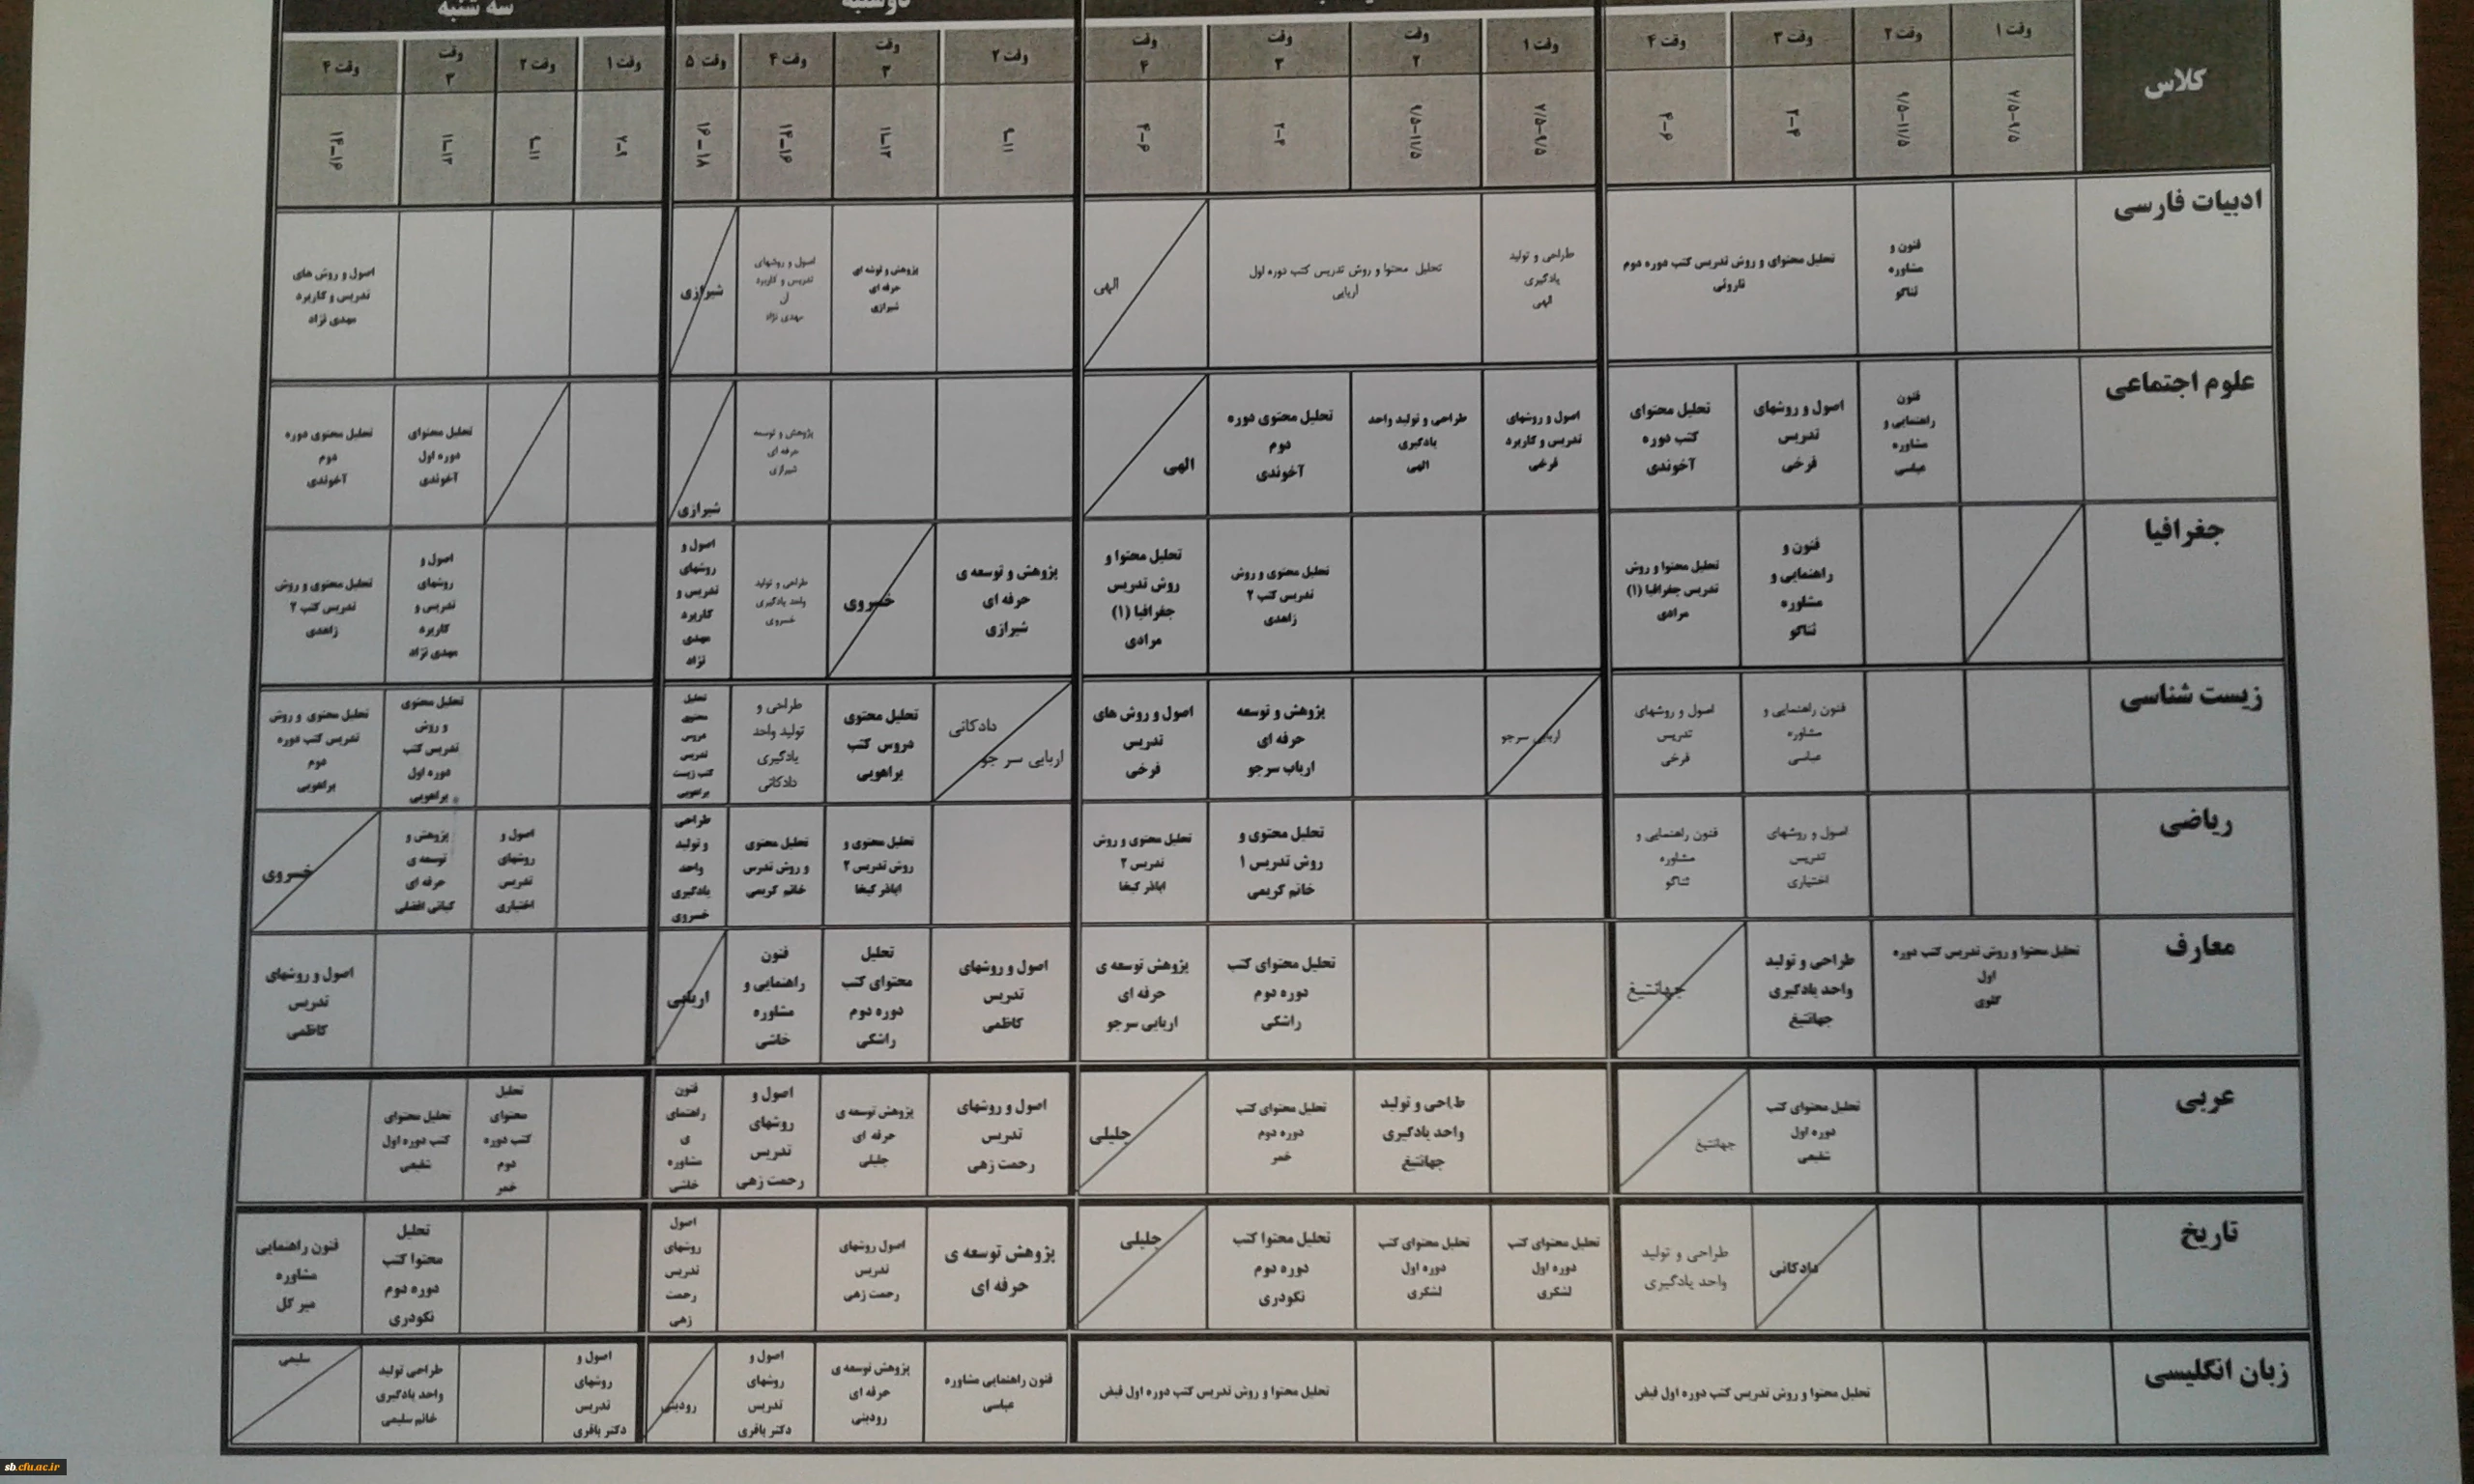 سه شنبه
کلاس
وقت ۱
وقت ۲
وقت ۳
وقت ۴
وقت ۱
وقت
۲
وقت
۳
وقت
۴
وقت ۲
وقت
۳
وقت ۴
وقت ۵
وقت ۱
وقت ۲
وقت
۳
وقت ۴
۷/۵-۹/۵
۹/۵-۱۱/۵
۲-۴
۴-۶
۷/۵-۹/۵
۹/۵-۱۱/۵
۲-۴
۴-۶
۹-۱۱
۱۱-۱۳
۱۴-۱۶
۱۶-۱۸
۷-۹
۹-۱۱
۱۱-۱۳
۱۴-۱۶
ادبیات فارسی
فنون و
مشاوره
ثناگو
تحلیل محتوای و روش تدریس کتب دوره دوم
ناروئی
طراحی و تولید
یادگیری
الهی
تحلیل محتوا و روش تدریس کتب دوره اول
اربابی
الهی
پژوهش و توشه ای
حرفه ای
شیرازی
اصول و روشهای
تدریس و کاربرد
آن
مهدی نژاد
شیرازی
اصول و روش های
تدریس و کاربرد
مهدی نژاد
علوم اجتماعی
فنون
راهنمایی و
مشاوره
عباسی
اصول و روشهای
تدریس
فرخی
تحلیل محتوای
کتب دوره
آخوندی
اصول و روشهای
تدریس و کاربرد
فرخی
طراحی و تولید واحد
یادگیری
الهی
تحلیل محتوی دوره
دوم
آخوندی
الهی
پژوهش و توسعه
حرفه ای
شیرازی
شیرازی
تحلیل محتوای
دوره اول
آخوندی
تحلیل محتوی دوره
دوم
آخوندی
جغرافیا
فنون و
راهنمایی و
مشاوره
ثناگو
تحلیل محتوا و روش
تدریس جغرافیا (۱)
مرادی
تحلیل محتوی و روش
تدریس کتب ۲
زاهدی
تحلیل محتوا و
روش تدریس
جغرافیا (۱)
مرادی
پژوهش و توسعه ی
حرفه ای
شیرازی
خسروی
طراحی و تولید
واحد یادگیری
خسروی
اصول و
روشهای
تدریس و
کاربرد
مهدی
نژاد
اصول و
روشهای
تدریس و
کاربرد
مهدی نژاد
تحلیل محتوی و روش
تدریس کتب ۲
زاهدی
زیست شناسی
فنون راهنمایی و
مشاوره
عباسی
اصول و روشهای
تدریس
فرخی
اربابی سرجو
پژوهش و توسعه
حرفه ای
ارباب سرجو
اصول و روش های
تدریس
فرخی
دادکانی
اربابی سر جو
تحلیل محتوی
دروس کتب
براهویی
طراحی و
تولید واحد
یادگیری
دادکانی
تحلیل
محتوی
دروس
تدریس
کتب زیست
براهویی
تحلیل محتوی
و روش
تدریس کتب
دوره اول
براهویی
تحلیل محتوی و روش
تدریس کتب دوره
دوم
براهویی
ریاضی
اصول و روشهای
تدریس
اختیاری
فنون راهنمایی و
مشاوره
ثناگو
تحلیل محتوی و
روش تدریس ۱
خانم کریمی
تحلیل محتوی و روش
تدریس ۲
اباذر کیخا
تحلیل محتوی و
روش تدریس ۲
اباذر کیخا
تحلیل محتوی
و روش تدرس
خانم کریمی
طراحی
و تولید
واحد
یادگیری
خسروی
اصول و
روشهای
تدریس
اختیاری
پژوهش و
توسعه ی
حرفه ای
کیانی افضلی
خسروی
معارف
تحلیل محتوا و روش تدریس کتب دوره
اول
گلوی
طراحی و تولید
واحد یادگیری
جهانتیغ
جهانتیغ
تحلیل محتوای کتب
دوره دوم
راشکی
پژوهش توسعه ی
حرفه ای
اربابی سرجو
اصول و روشهای
تدریس
کاظمی
تحلیل
محتوای کتب
دوره دوم
راشکی
فنون
راهنمایی و
مشاوره
خاشی
اربابی
اصول و روشهای
تدریس
کاظمی
عربی
تحلیل محتوای کتب
دوره اول
شفیعی
جهانتیغ
طراحی و تولید
واحد یادگیری
جهانتیغ
تحلیل محتوای کتب
دوره دوم
خمر
جلیلی
اصول و روشهای
تدریس
رحمت زهی
پژوهش توسعه ی
حرفه ای
جلیلی
اصول و
روشهای
تدریس
رحمت زهی
فنون
راهنمای
ی
مشاوره
خاشی
تحلیل
محتوای
کتب دوره
دوم
خمر
تحلیل محتوای
کتب دوره اول
شفیعی
تاریخ
دادکانی
طراحی و تولید
واحد یادگیری
تحلیل محتوای کتب
دوره اول
لشگری
تحلیل محتوای کتب
دوره اول
لشگری
تحلیل محتوا کتب
دوره دوم
نکودری
جلیلی
پژوهش توسعه ی
حرفه ای
اصول روشهای
تدریس
رحمت زهی
اصول
روشهای
تدریس
رحمت
زهی
تحلیل
محتوا کتب
دوره دوم
نکودری
فنون راهنمایی
مشاوره
میر کل
زبان انگلیسی
تحلیل محتوا و روش تدریس کتب دوره اول فیض
تحلیل محتوا و روش تدریس کتب دوره اول فیض
فنون راهنمایی مشاوره
عباسی
پژوهش توسعه ی
حرفه ای
رودینی
اصول و
روشهای
تدریس
دکتر باقری
رودینی
اصول و
روشهای
تدریس
دکتر باقری
طراحی تولید
واحد یادگیری
خانم سلیمی
سلیمی
sb.cfu.ac.ir